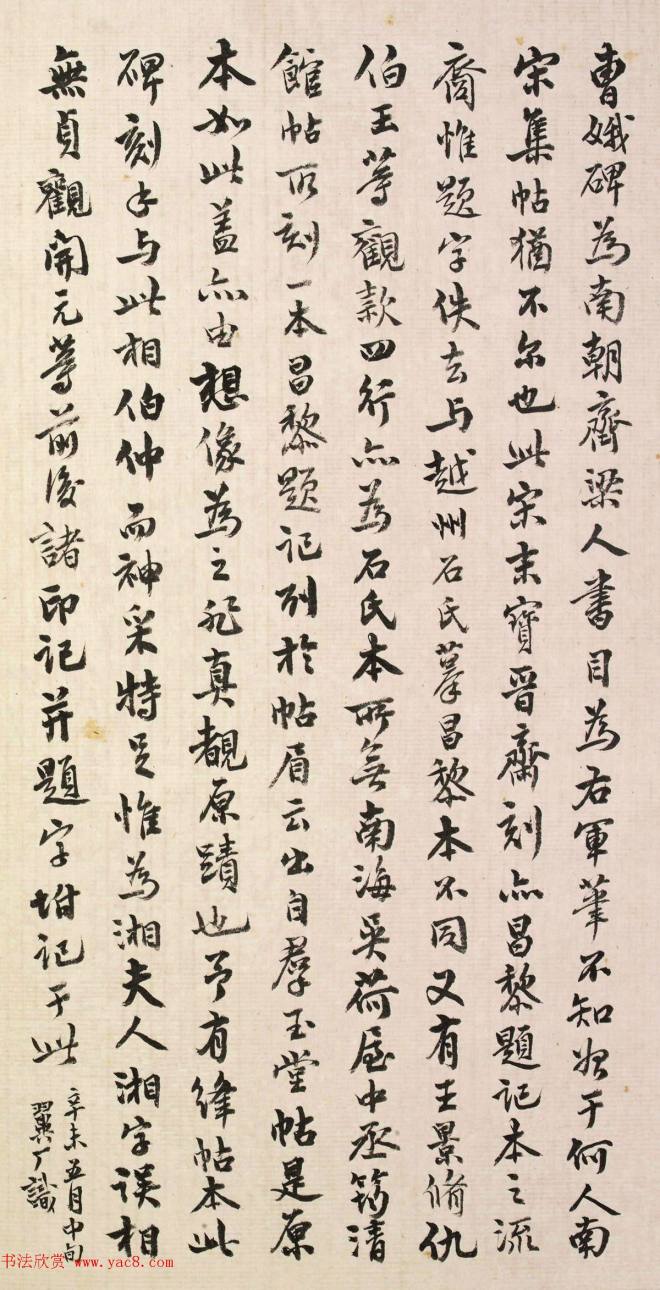 曹娥碑為南朝齊梁人書目為右軍筆不知始于何人南
宋集帖猶不尔也此宋末寶晉齋刻亦昌黎題記本之流
裔惟題字佚去与越州石氏摹昌黎本不同又有王景脩仇
伯玉等觀款四行亦為石氏本所無南海吳荷屋中丞筠清
館帖所刻一本昌黎題記列於帖眉云出自羣玉堂帖是原
本如此盖亦由想像為之非真覩原蹟也予有絳帖本此
碑刻手与此相伯仲而神采特足惟為湘夫人湘字误相
無貞觀開元等前後諸印記并題字坿記于此
辛未五月中旬
翼厂識
书法欣赏 www.yac8.com